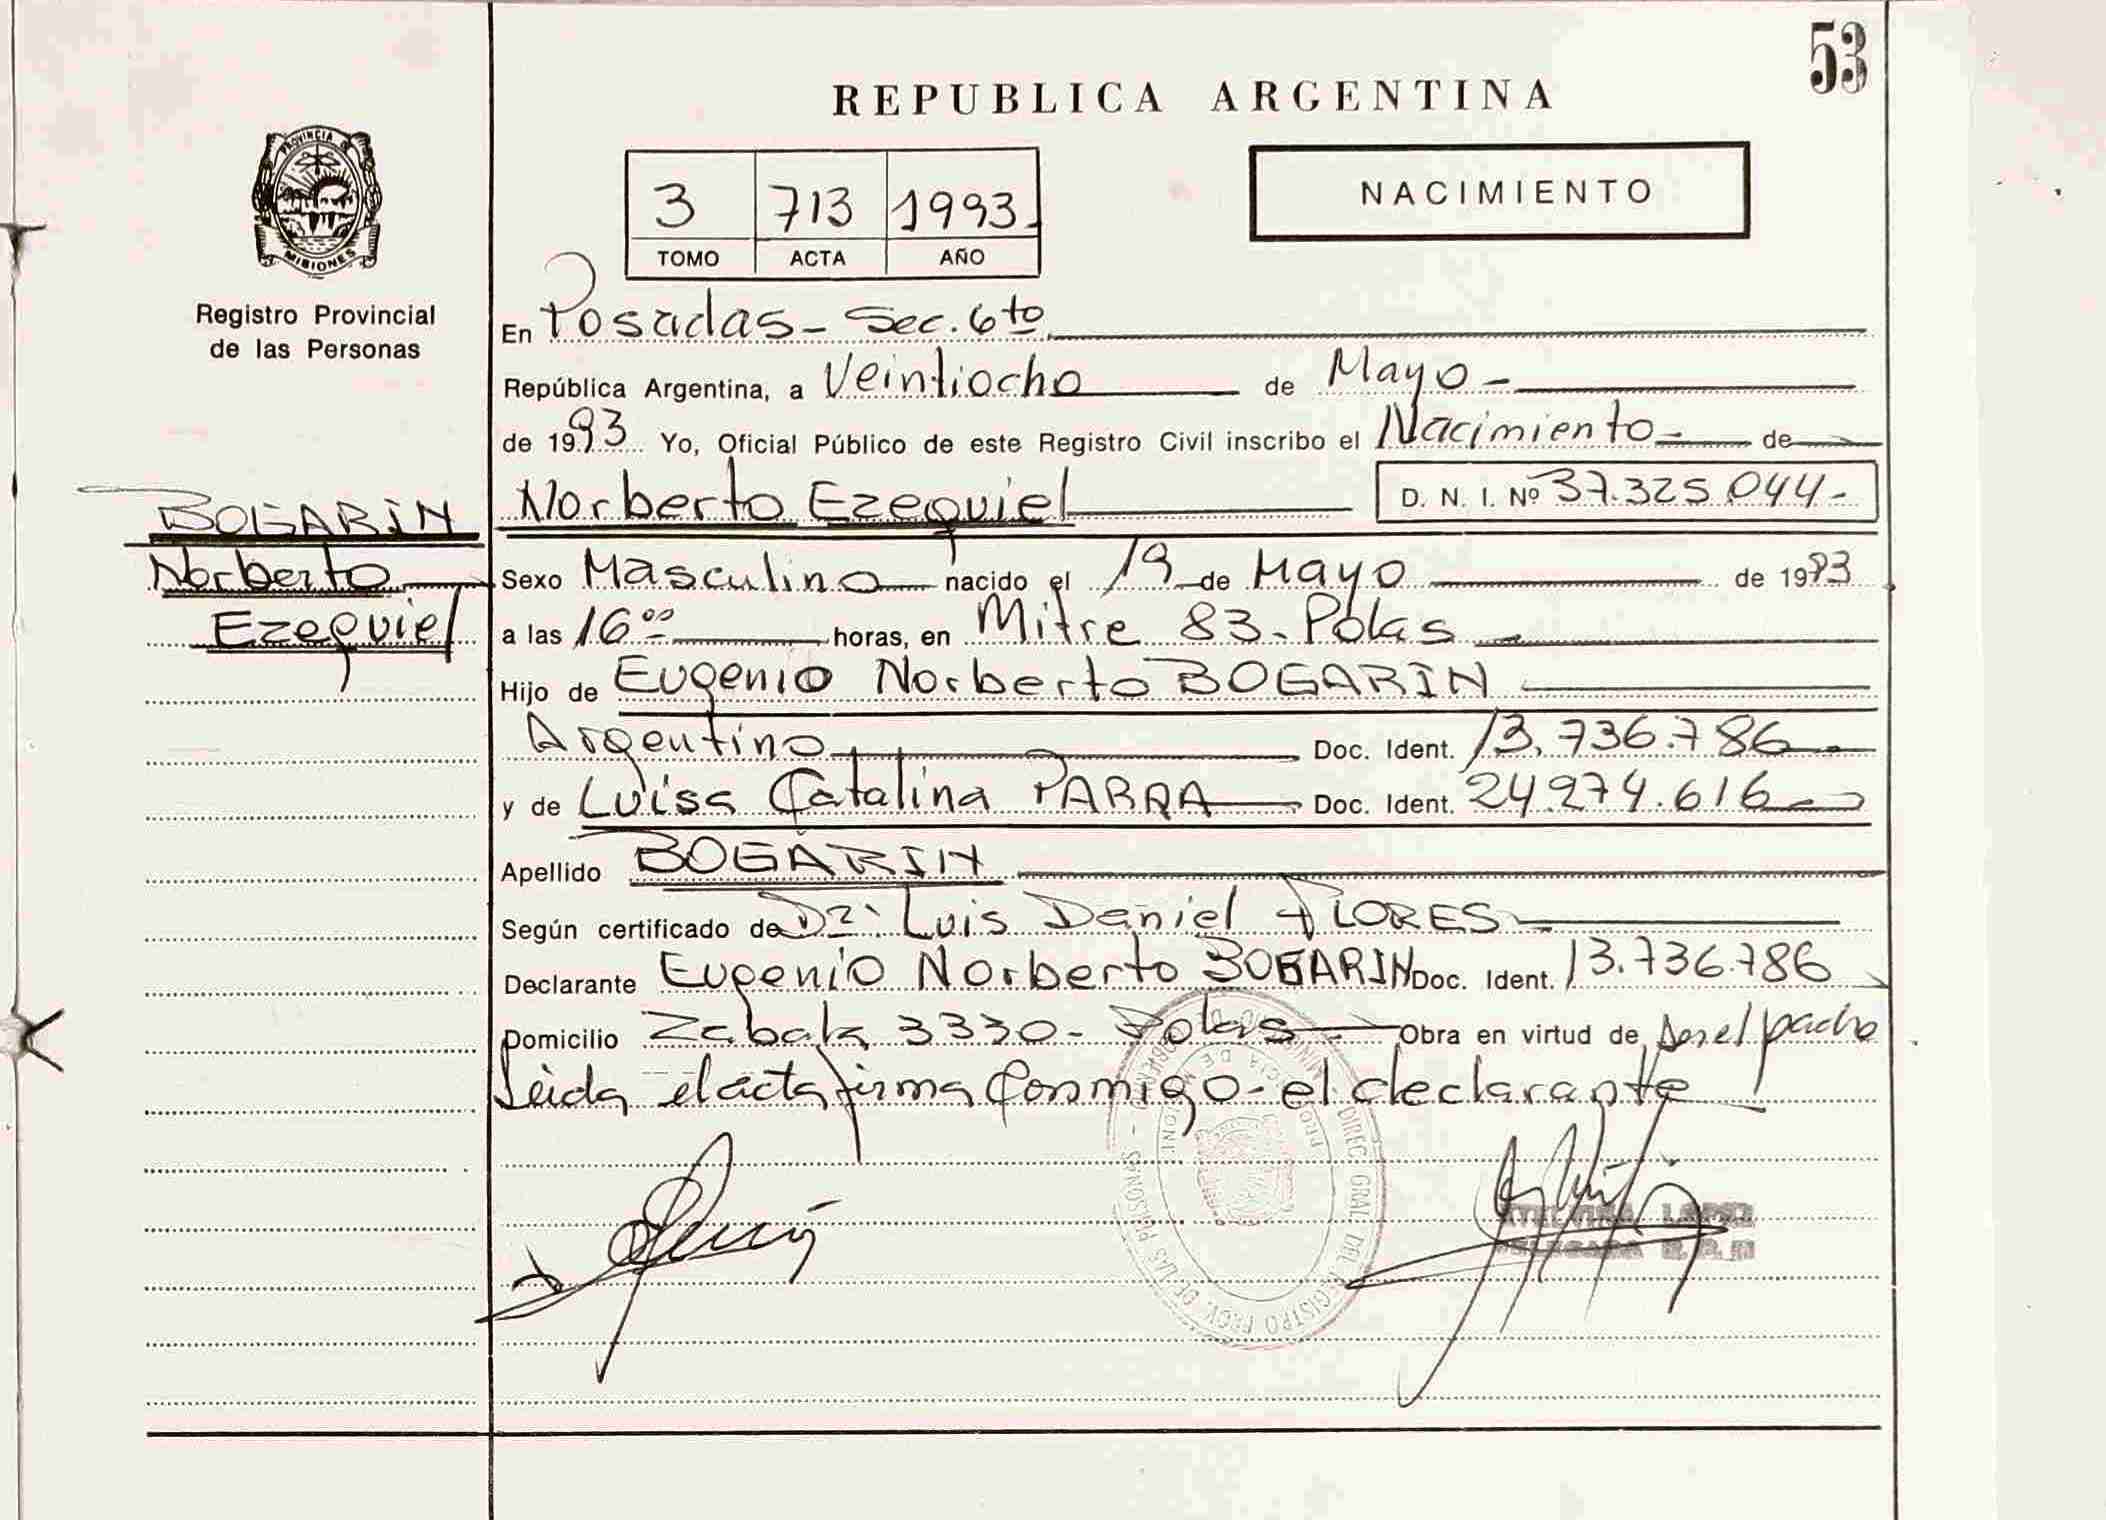 53
REPUBLICA ARGENTINA
PROVINCIA DE
MISIONES
Registro Provincial
de las Personas
3 713 1993
TOMO ACTA AÑO
NACIMIENTO
En Posadas - Sec. 6to
República Argentina, a Veintiocho de Mayo -
de 1993 Yo, Oficial Público de este Registro Civil inscribo el Nacimiento - de
Norberto Ezequiel D. N. I. Nº 37.325.044 -
BOGARIN
Norberto
Ezequiel
Sexo Masculino nacido el 19 de Mayo de 1993
a las 16 00 horas, en Mitre 83 - Pdas
Hijo de Eugenio Norberto BOGARIN
Argentino Doc. Ident. 13.736.786
y de Luisa Catalina PARRA Doc. Ident. 24.274.616
Apellido BOGARIN
Según certificado de Dr. Luis Daniel FLORES
Declarante Eugenio Norberto BOGARIN Doc. Ident. 13.736.786
Domicilio Zabala 3330 - Pdas - Obra en virtud de ser el padre
Leida el acta firma conmigo - el declarante
DIREC. GRAL. DEL REGISTRO PROV. DE LAS PERSONAS
LOPEZ
DELEGADA R. P.